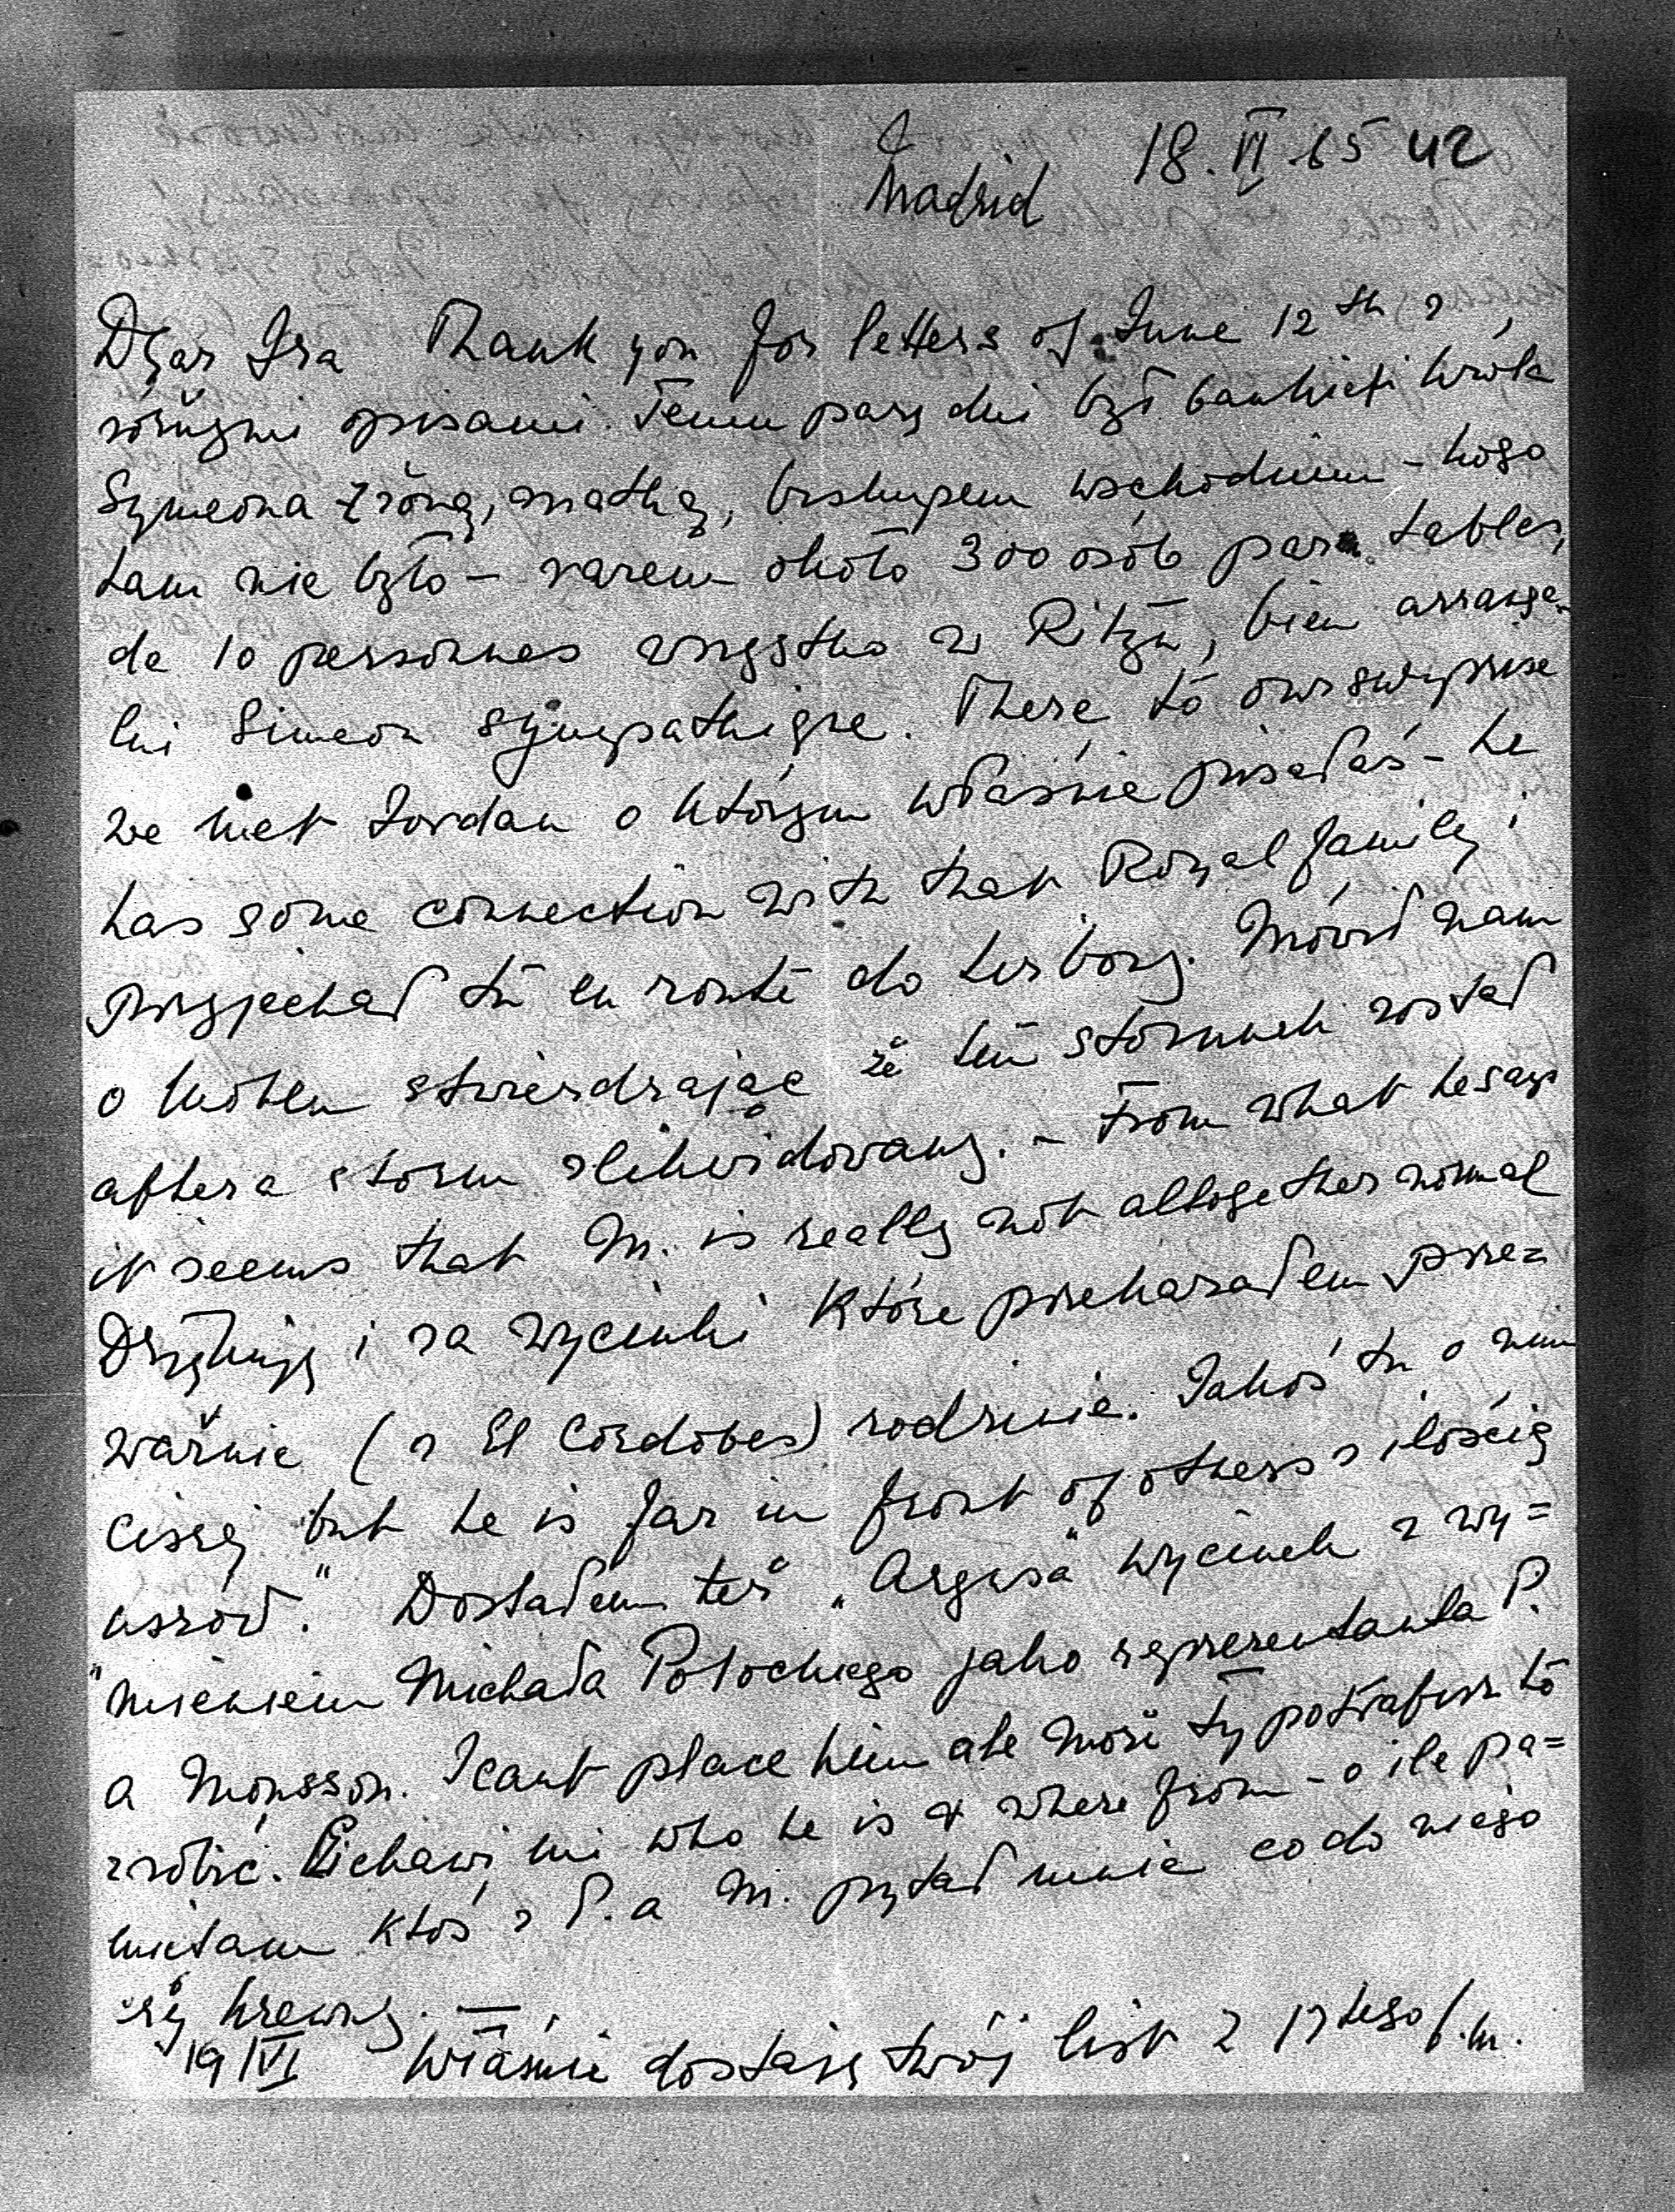 Madrid 18.VI 65 42
Dear Ira Thank you for letters of June 12th z
różnymi opisami. Temu parę dni był bankiet króla
Symeona z żoną, matką, biskupem wschodnim – kogo
tam nie było – razem około 300 osób par tables,
de 10 personnes wszystko w Ritzu, bien arrangé.
lui Simeon sympathique. There to our surprise
we met Jordan o którym właśnie pisałaś – he
has some connection with that Royal family i
przyjechał tu en route do Lisbony. Mówił nam
o stwierdzając że ten został
after a storm zlikwidowany. – From what he says
it seems that M. is really not altogether normal
Dziękuję i za wycinki które przekazałem przez
ważnie (z El Cordobes) rodzinie. Jakoś tu o nim
ciszej but he is far in front of others z ilością
uszów." Dostałem też „Argusa" wycinek z wy=
"mienieniem Michała Potockiego jako reprezentanta P.
a Monsson. I cant place him ale może ty potrafisz to
zrobić. Ciekawi mi who he is & where from – o ile pa=
miętam ktoś z P. a M. pytał mnie co do niego
czy krewny. —
19/VI Właśnie dostaję twój list z 17tego b.m.